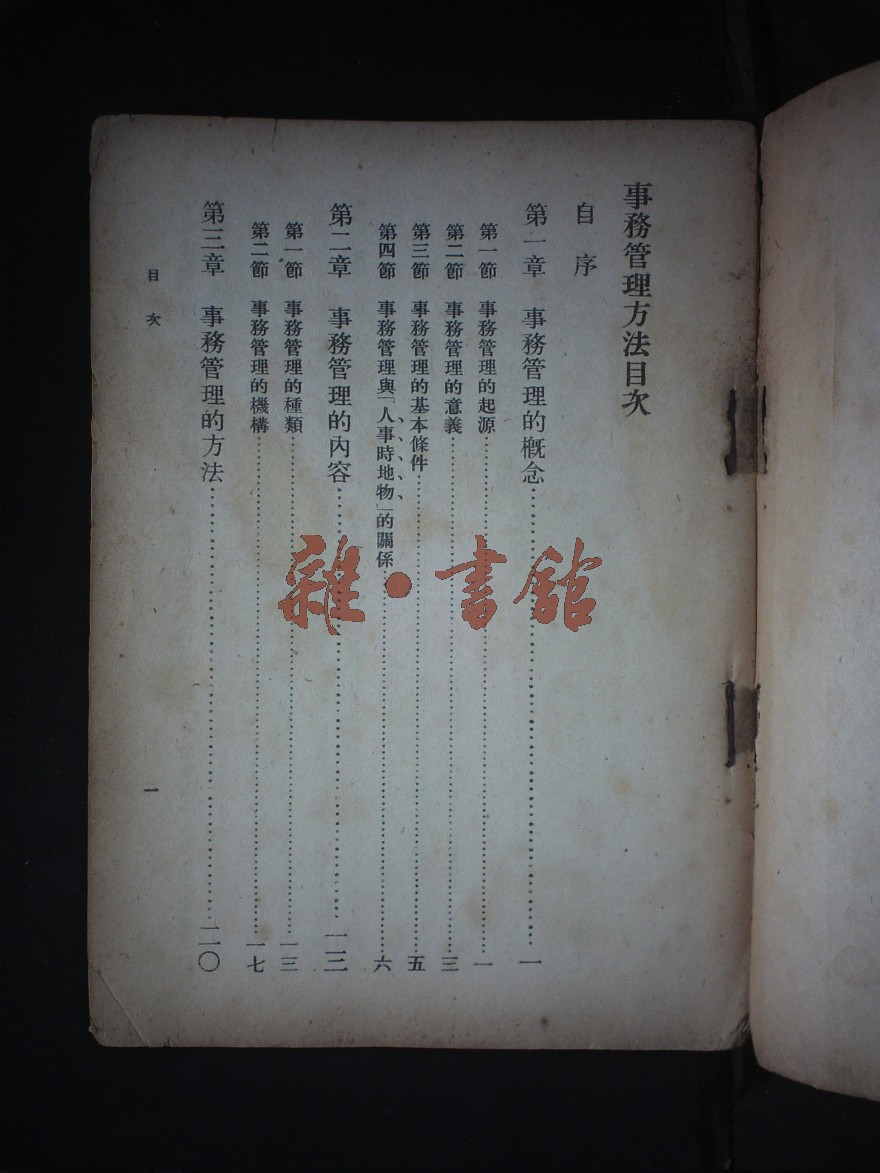 事務管理方法目次
自序
第一章 事務管理的概念……一
第一節 事務管理的起源……一
第二節 事務管理的意義……三
第三節 事務管理的基本條件……五
第四節 事務管理與「人、事、時、地、物、」的關係……六
第二章 事務管理的內容……一三
第一節 事務管理的種類……一三
第二節 事務管理的機構……一七
第三章 事務管理的方法……二〇
目次
一
雜•書館